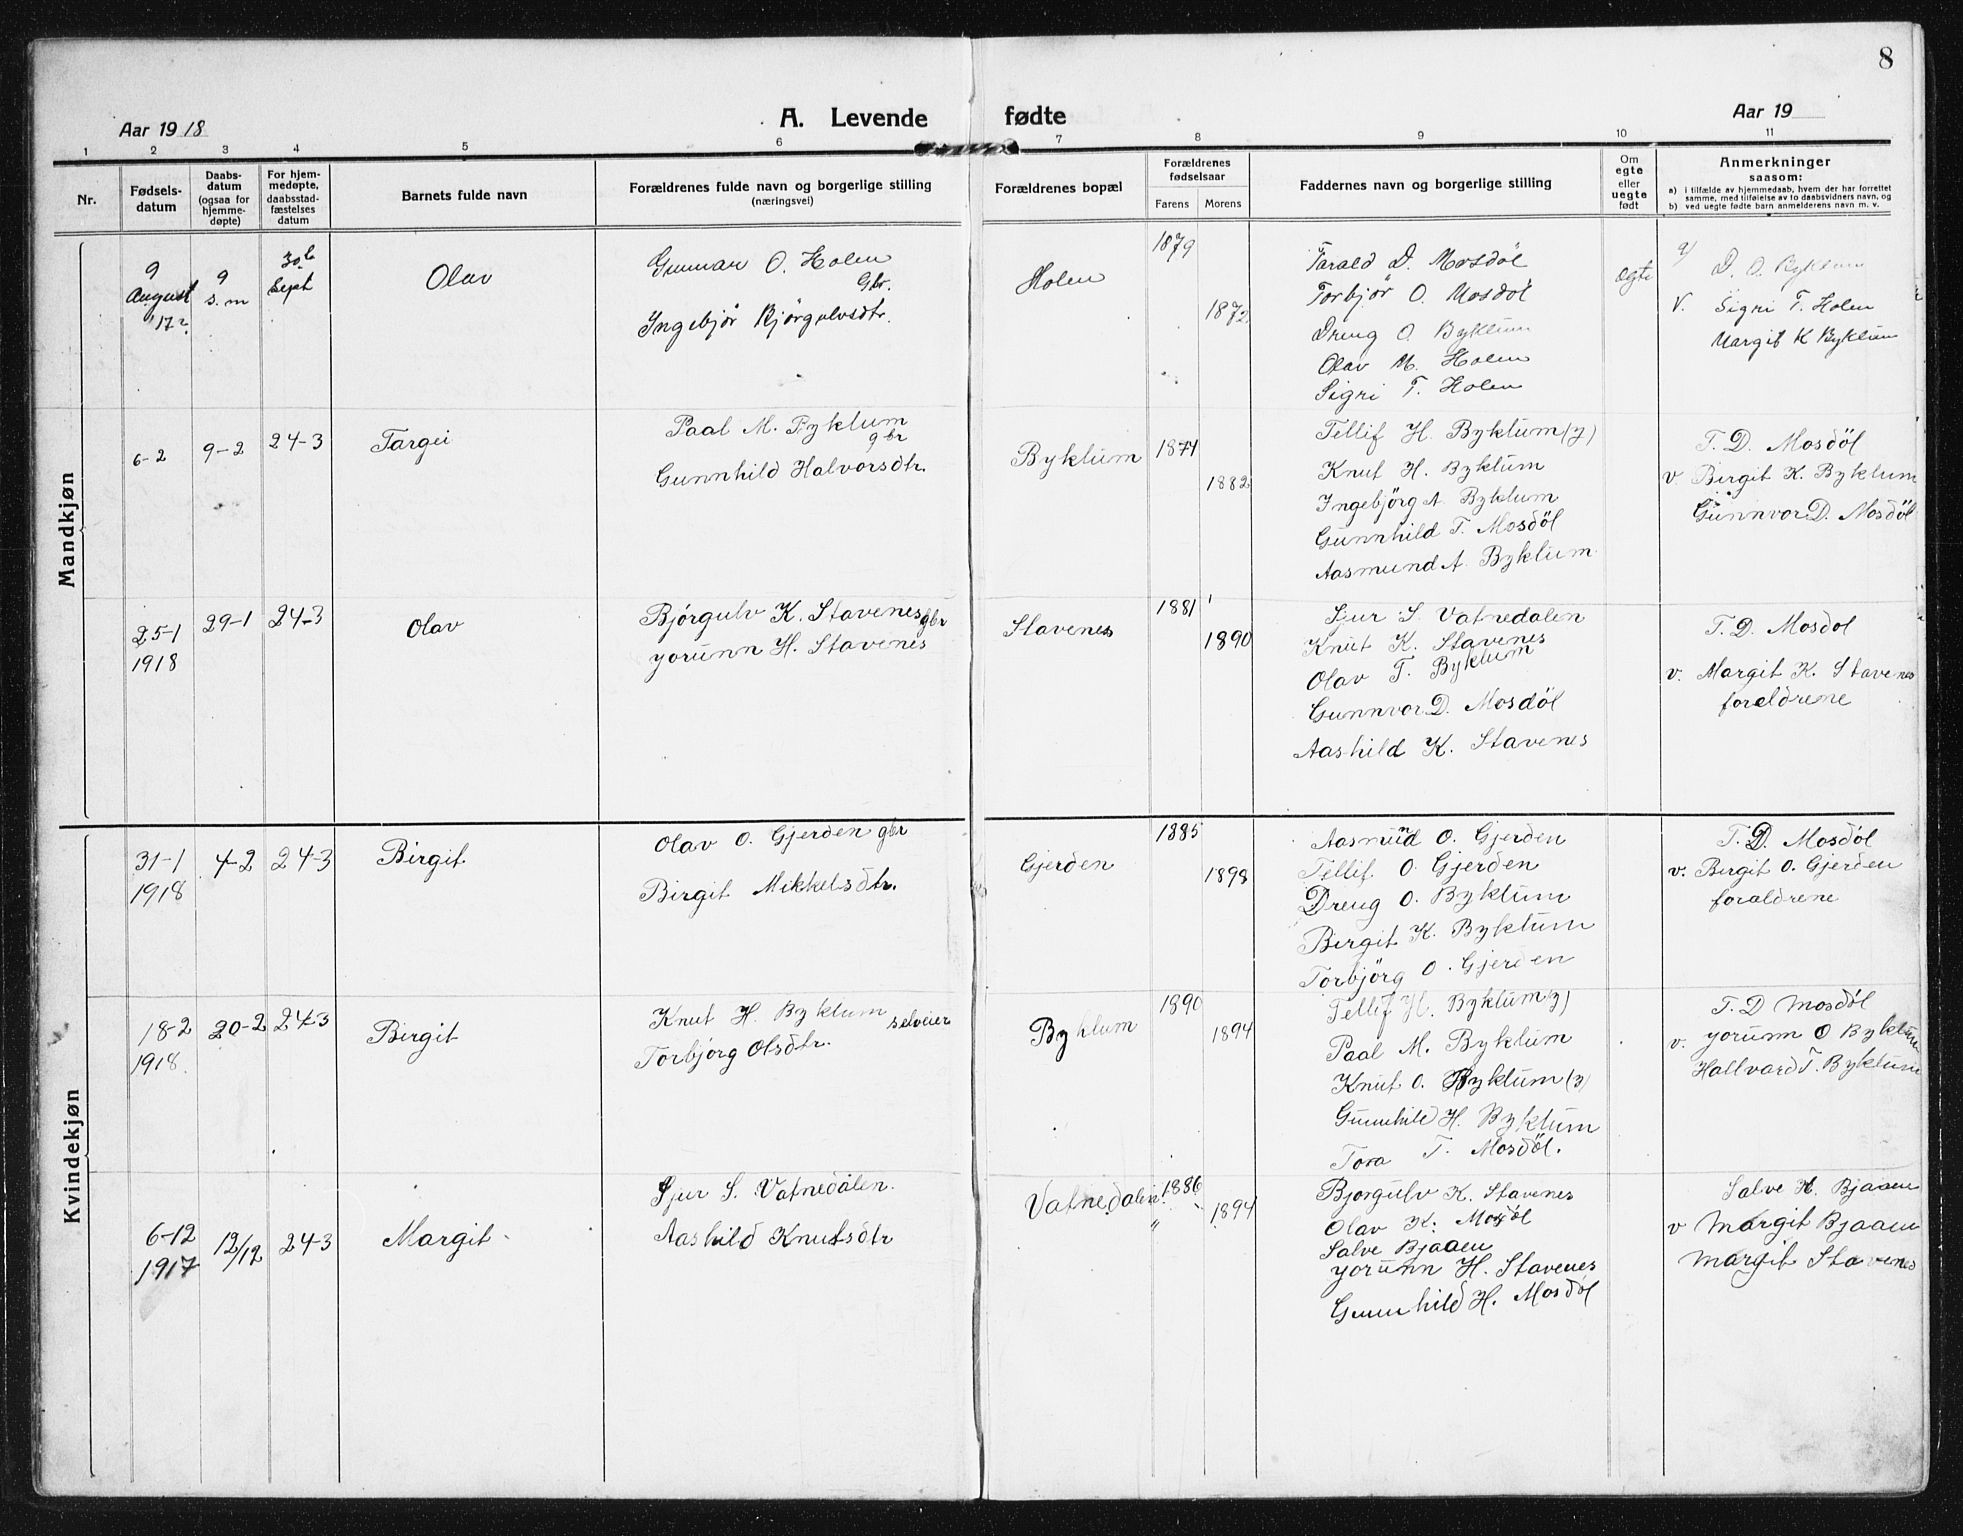 8
Aar 1918
A. Levende fødte
Aar 19
1 2 3 4 5 6 7 8 9 10 11
Nr.
Fødsels-
datum
Daabs-
datum
(ogsaa for
hjemme-
døpte)
For hjem-
medøpte,
daabsstad-
fæstelses
datum
Barnets fulde navn
Forældrenes fulde navn og borgerlige stilling
(næringsvei)
Forældrenes bopæl
Forældrenes
fødselsaar
Farens Morens
Faddernes navn og borgerlige stilling
Om
egte
eller
uegte
født
Anmerkninger
saasom:
a) i tilfælde av hjemmedaab, hvem der har forrettet
samme, med tilføielse av to daabsvidners navn, og
b) ved uegte fødte barn anmelderens navn m. v.
Mandkjøn
9
August
17
9
s. m
Sept
Olav
Gunnar O. Holen
Gbr.
Ingebjør Bjørgulvsdtr.
Holen
1879
1872
Tarald D. Mosdöl
Torbjør O. Mosdöl
Dreng O. Byklum
Olav M. Holen
Sigri T. Holen
egte
a/ D. O. Byklum
V. Sigri T. Holen
Margit K Byklum
6-2
9-2
24-3
Targei
Paal M. Byklum
gbr
Gunnhild Halvorsdtr.
Byklum
1874
1882
Tellif H. Byklum (y)
Knut H. Byklum
Ingebjörg A. Byklum
Gunnhild T. Mosdöl
Aasmund A. Byklum
T. D. Mosdöl
v Birgit K. Byklum
Gunnvor D. Mosdöl
25-1
1918
29-1
24-3
Olav
Bjørgulv K. Stavenes gbr
Yorunn H. Stavenes
Stavenes
1881
1890
Sjur S. Vatnedalen
Knut K. Stavenes
Olav T. Byklum
Gunnvor D. Mosdöl
Aashild K. Stavenes
T. D. Mosdøl
v. Margit K. Stavenes
foreldrene
Kvindekjøn
31-1
1918
4-2
24-3
Birgit
Olav O. Gjerden gbr
Birgit Mikkelsdtr.
Gjerden
1885
1898
Aasmund O. Gjerden
Tellif O. Gjerden
Dreng O. Byklum
Birgit K. Byklum
Torbjörg O. Gjerden
T. D. Mosdöl
v. Birgit O. Gjerden
foraldrene
18-2
1918.
20-2
24-3
Birgit
Knut H. Byklum
selveier
Torbjørg Olsdtr.
Byklum
1890
1894
Tellif H. Byklum (y)
Paal M. Byklum
Knut O. Byklum (y)
Gunnhild H. Byklum
Tora T. Mosdöl.
T. D Mosdöl
v. Yorunn O Byklum
Hallvard T. Byklum
6-12
1917
12/12
24-3
Margit
Sjur S. Vatnedalen.
Aashild Knutsdtr
Vatnedalen.
"
1886
1894
Bjørgulv K. Stavenes
Olav K. Mosdöl
Salve Bjaaen
Yorunn H. Stavenes
Gunnhild H. Mosdöl
Salve H. Bjaaen
v Margit Bjaaen
Margit Stavenes